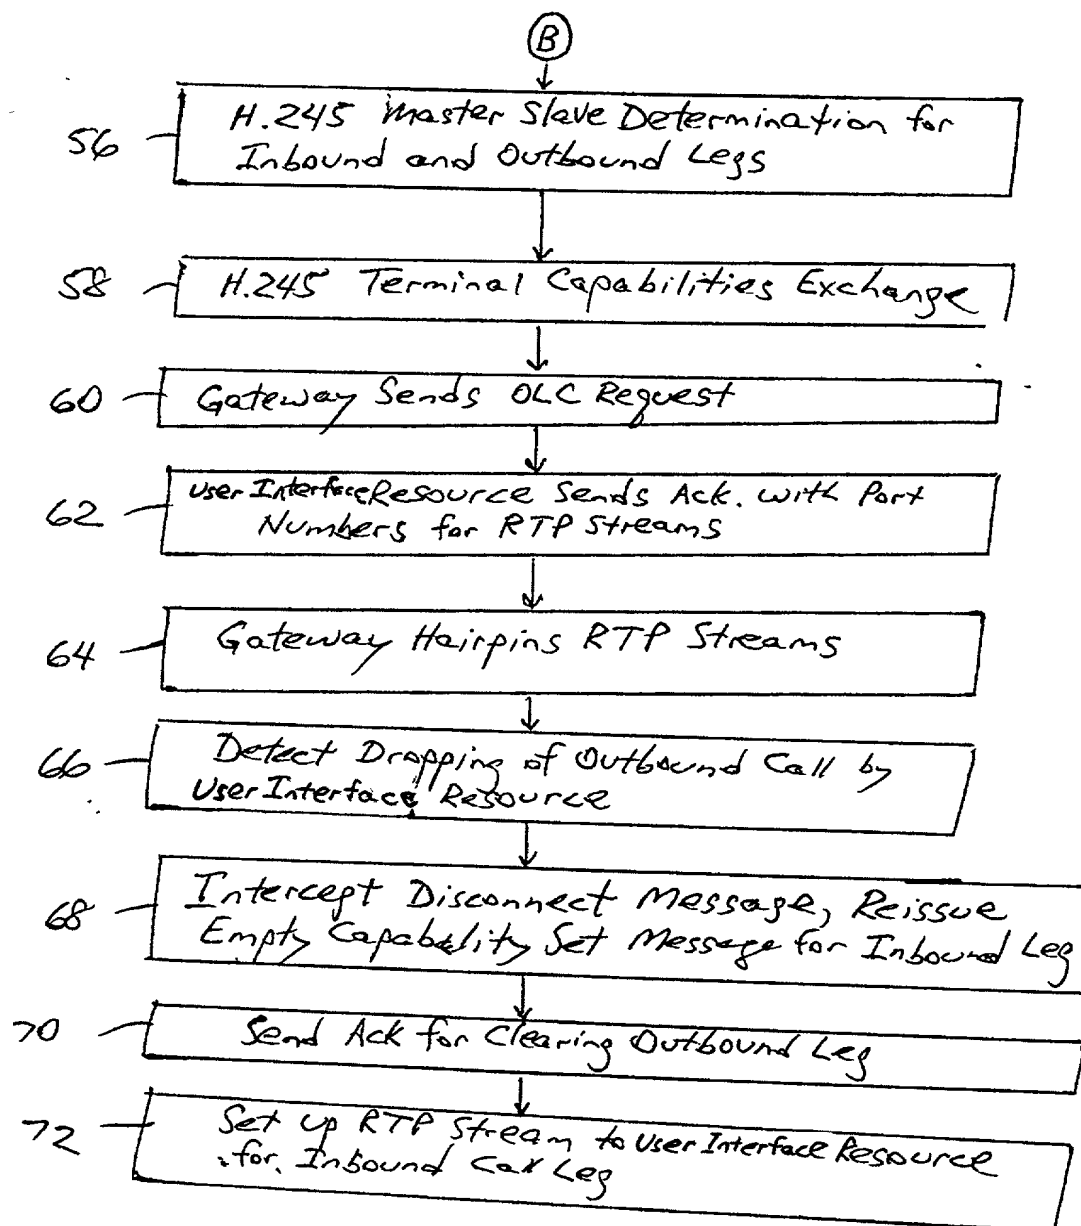 B
56
H.245 Master Slave Determination for
Inbound and Outbound Legs
58
H.245 Terminal Capabilities Exchange
60
Gateway Sends OLC Request
62
User Interface Resource Sends Ack. with Port
Numbers for RTP Streams
64
Gateway Hairpins RTP Streams
66
Detect Dropping of Outbound Call by
User Interface Resource
68
Intercept Disconnect Message, Reissue
Empty Capability Set Message for Inbound Leg
70
Send Ack for Clearing Outbound Leg
72
Set up RTP Stream to User Interface Resource
for Inbound Call Leg